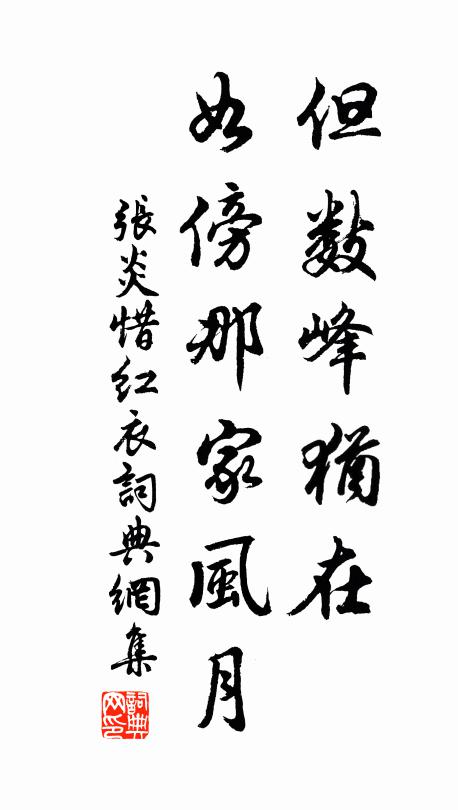 但數峰猶在
如傍那家風月
張炎惜紅衣詞典網集
詞典
网印